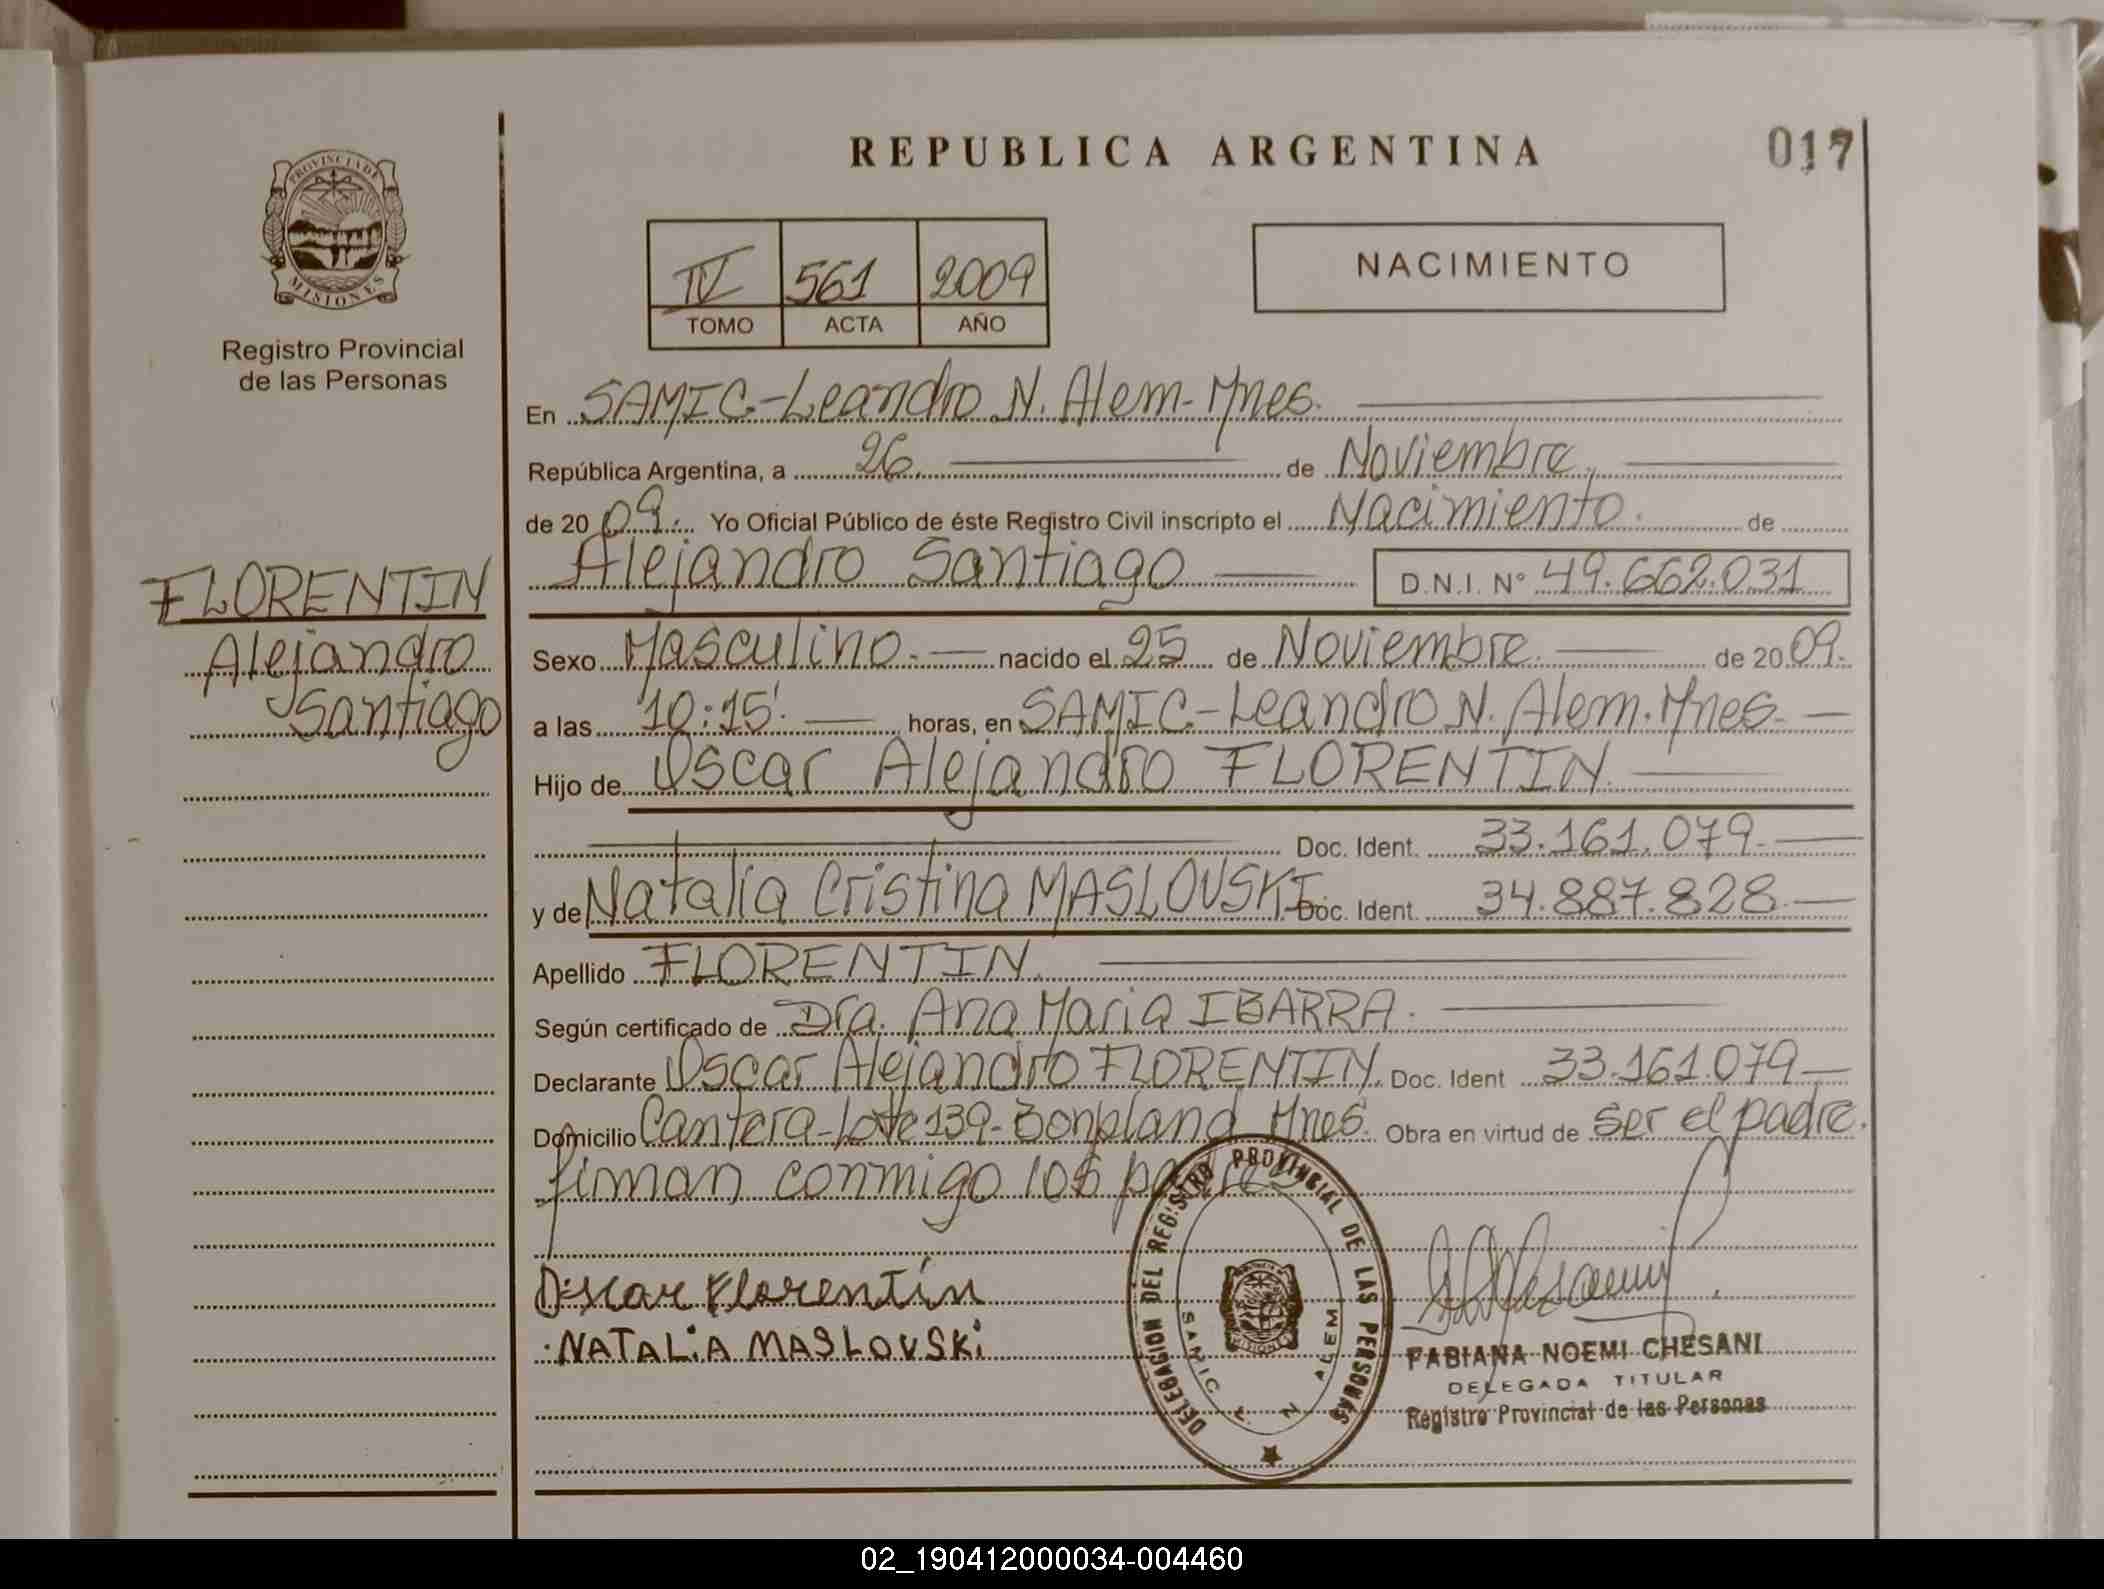 REPUBLICA ARGENTINA
017
PROVINCIA DE
MISIONES
Registro Provincial
de las Personas
IV 561 2009
TOMO ACTA AÑO
NACIMIENTO
En SAMIC-Leandro N. Alem-Mnes.
República Argentina, a 26. de Noviembre,
de 2009. Yo Oficial Público de éste Registro Civil inscripto el Nacimiento. de
Alejandro Santiago D.N.I. Nº 49.662.031
FLORENTIN
Alejandro
Santiago
Sexo Masculino. nacido el 25 de Noviembre. de 2009.
a las 10:15'. horas, en SAMIC-Leandro N. Alem. Mnes.
Hijo de Oscar Alejandro FLORENTIN.
Doc. Ident. 33.161.079.
y de Natalia Cristina MASLOVSKI. Doc. Ident. 34.887.828.
Apellido FLORENTIN.
Según certificado de Dra. Ana Maria IBARRA.
Declarante Oscar Alejandro FLORENTIN. Doc. Ident 33.161.079
Domicilio Cantera-Lote 139-Bonpland Mnes. Obra en virtud de ser el padre.
firman conmigo los padres
Oscar Florentín
NATALiA MASLOVSKi
DELEGACION DEL REGISTRO PROVINCIAL DE LAS PERSONAS
SAMIC L. N ALEM
FABIANA NOEMI CHESANI
DELEGADA TITULAR
Registro Provincial de las Personas
02_190412000034-004460